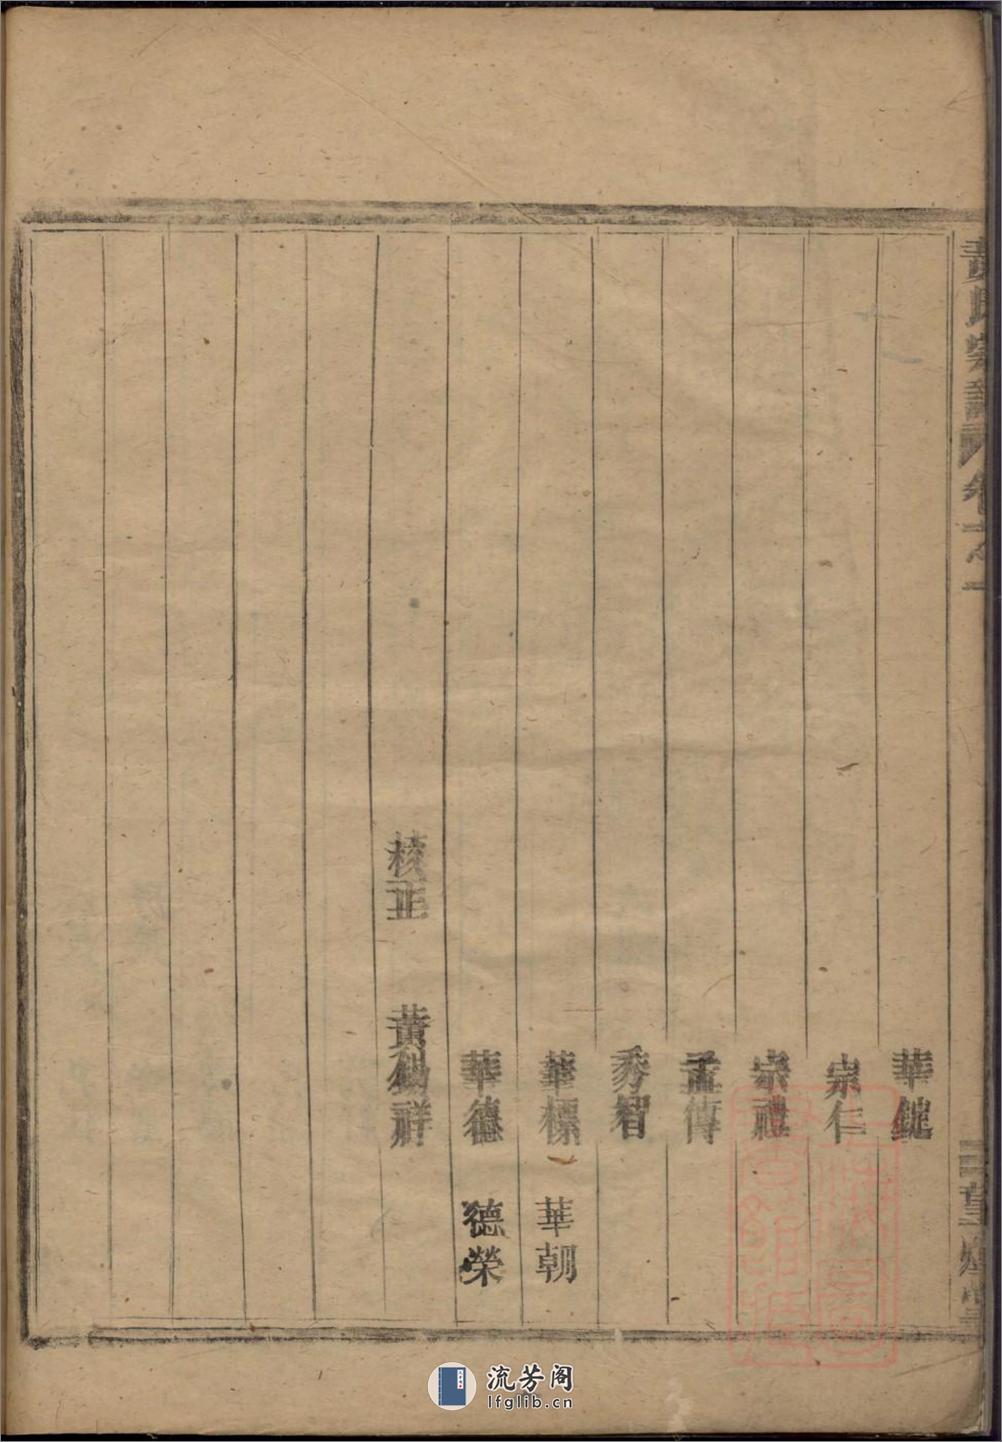 黃氏宗譜
卷
華鋌
宗仁
宗禮
孟傳
秀智
華標 華朝
華德 德榮
校正 黃錫祥
流芳阁
lfglib.cn